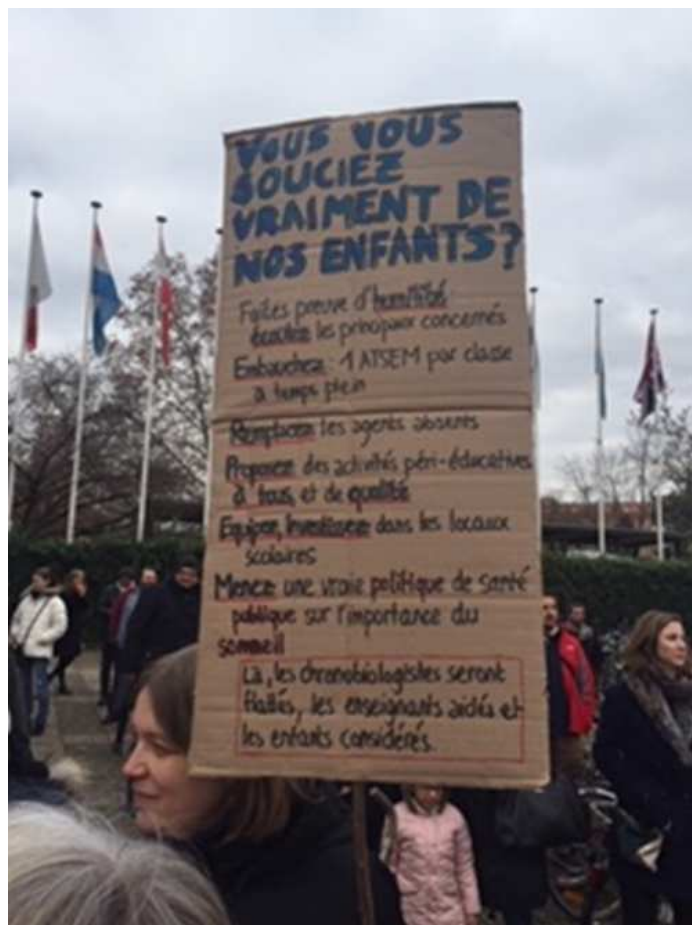 VOUS VOUS
SOUCIEZ
VRAIMENT DE
NOS ENFANTS?
Faites preuve d'humilité
écoutez les principaux concernés
Embauchez 1 ATSEM par classe
à temps plein
Remplacez les agents absents
Proposez des activités péri-éducatives
à tous, et de qualité
Equipez, investissez dans les locaux
scolaires
Menez une vraie politique de santé
publique sur l'importance du
sommeil
Là, les chronobiologistes seront
flattés, les enseignants aidés et
les enfants considérés.